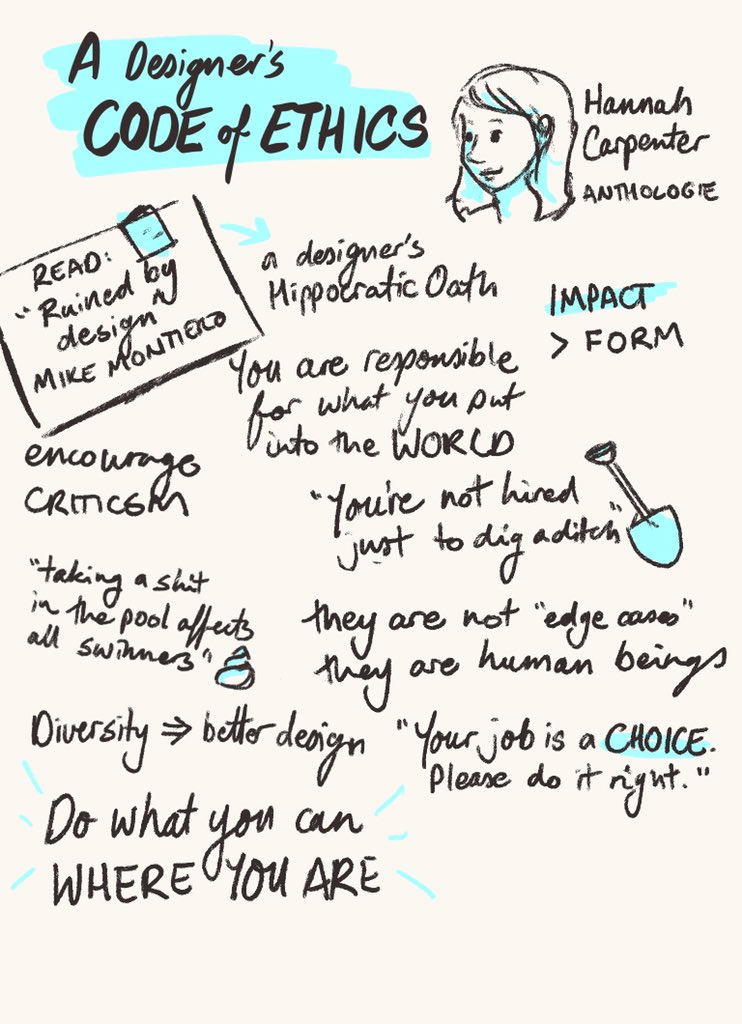 A Designer's
CODE of ETHICS
Hannah
Carpenter
ANTHOLOGIE
READ:
"Ruined by
design"
MIKE MONTIERO
a designer's
Hippocratic Oath
IMPACT
> FORM
You are responsible
for what you put
into the WORLD
encourage
CRITICSM
"You're not hired
just to dig a ditch"
"taking a shit
in the pool affects
all swimmers"
they are not "edge cases"
they are human beings
Diversity ⇒ better design
"Your job is a CHOICE.
Please do it right."
Do what you can
WHERE YOU ARE